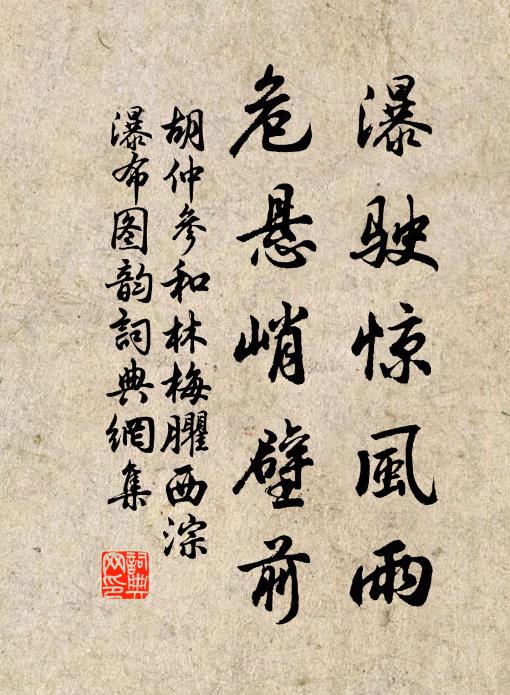 瀑驶惊風雨
危悬峭壁前
胡仲参和林梅臞西淙
瀑布图韵詞典網集
詞典网印